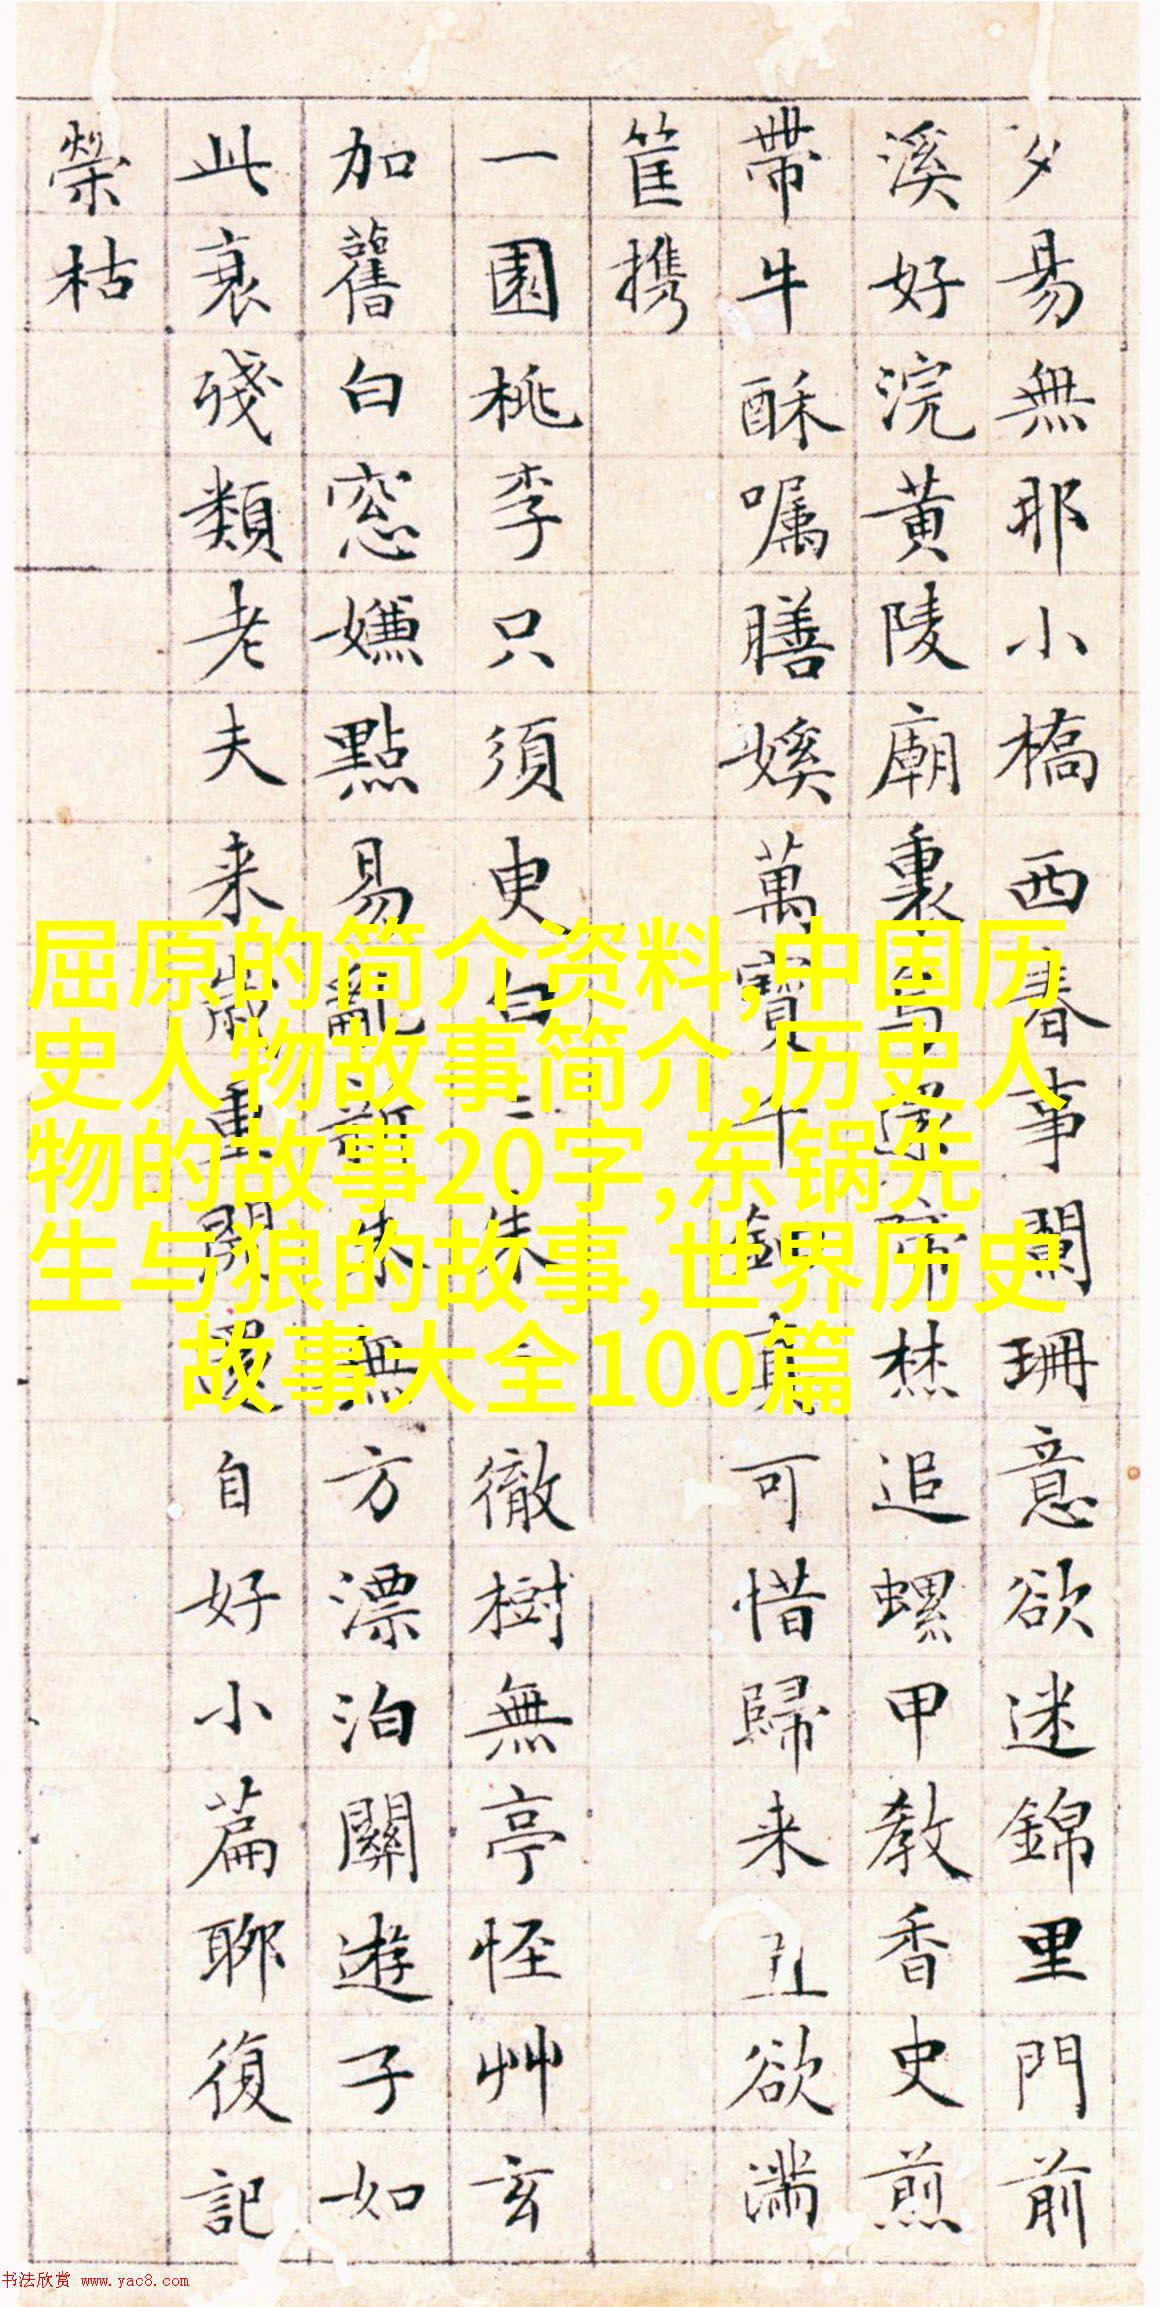 夕易無耶小橋西春事闌珊意欲迷錦里門前
溪好浣黃陵廟裏与帝焚追螺甲教香史煎
帶牛酥嘱膳媛萬寶千鈿真可惜歸来丑欲滿
筐携
一園桃李只須臾白二朱二徹樹無亭怪艸玄
加舊白窓嫌點易亂新朱無方漂泊關遊子如
此衰殘類老夫来歲重開還自好小篇聊復記
榮枯
屈原的简介资料,中国历
史人物故事简介,历史人
物的故事20字,东锅先
生与狼的故事,世界历史
故事大全100篇
书法欣赏 www.yac8.com